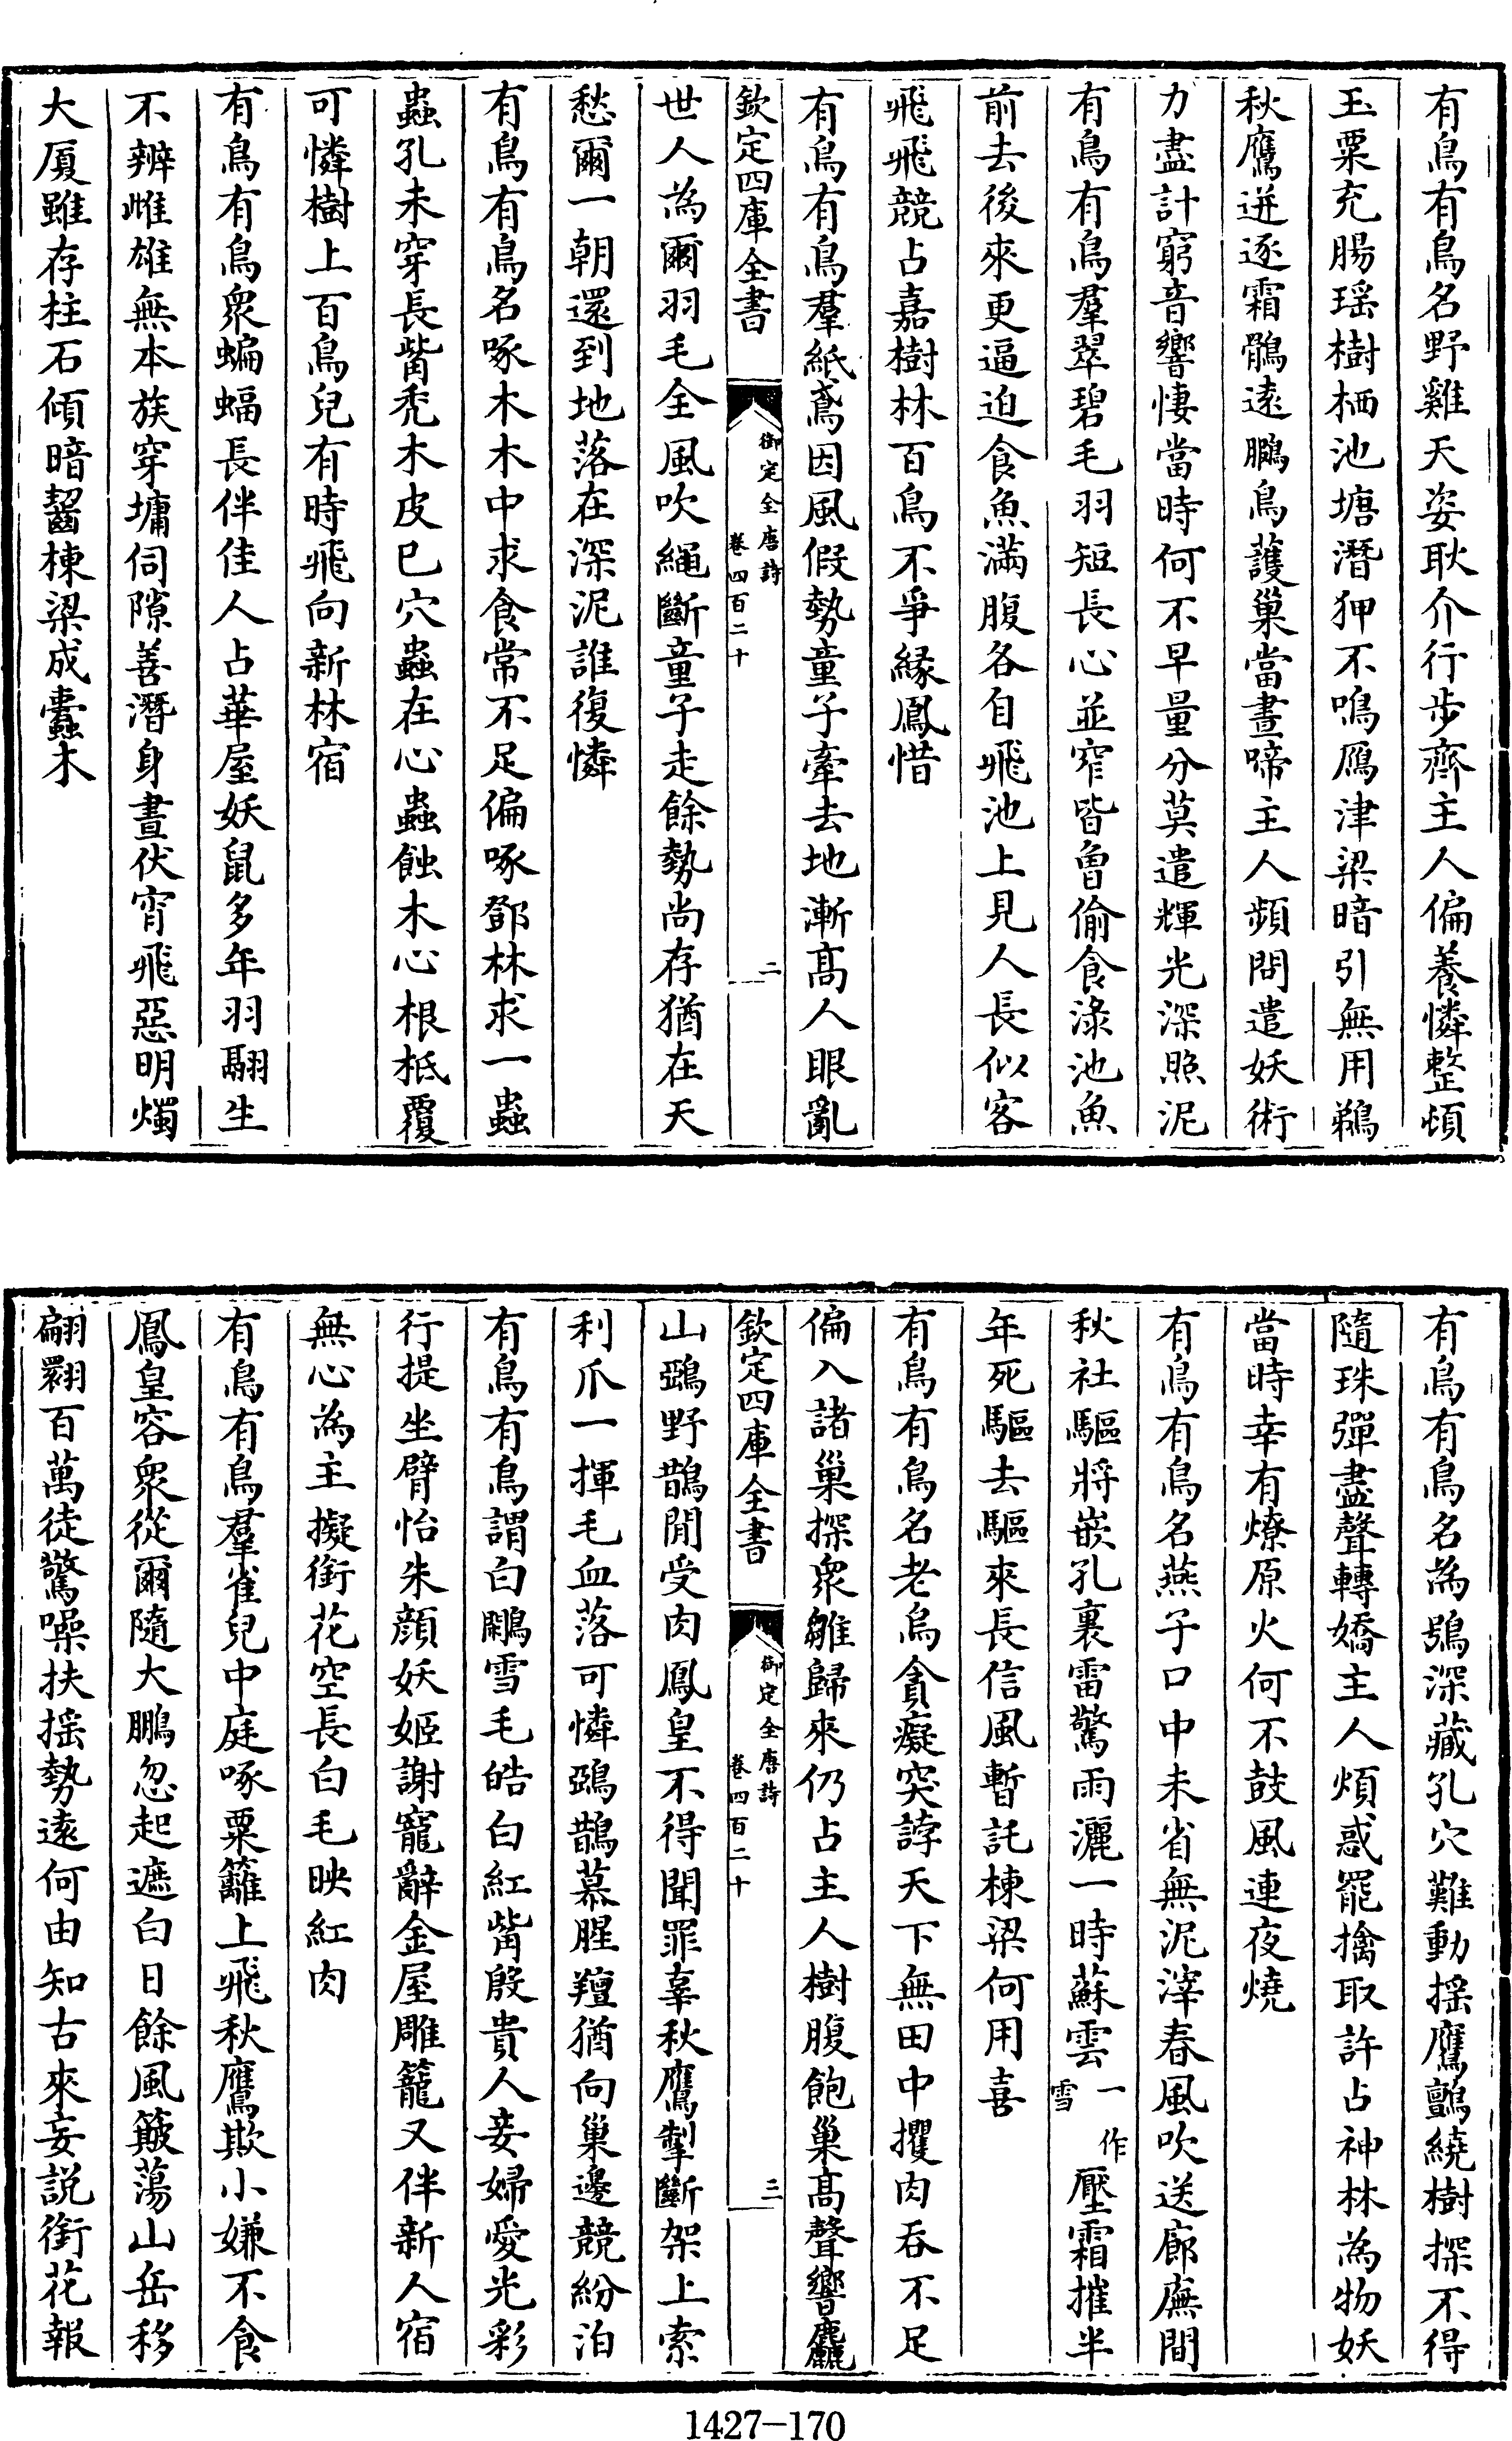 有鳥有鳥名野雞天姿耿介行步齊主人偏養憐整頓
玉粟充腸瑶樹栖池塘潛狎不鳴鴈津梁暗引無用鵜
秋鷹迸逐霜鶻遠鵩鳥護巢當晝啼主人頻問遣妖術
力盡計窮音響悽當時何不早量分莫遣輝光深照泥
有鳥有鳥羣翠碧毛羽短長心並窄皆曾偷食渌池魚
前去後來更逼迫食魚滿腹各自飛池上見人長似客
飛飛競占嘉樹林百鳥不爭緣鳳惜
有鳥有鳥羣紙鳶因風假勢童子牽去地漸高人眼亂
欽定四庫全書
御定全唐詩
卷四百二十
二
世人為爾羽毛全風吹繩斷童子走餘勢尚存猶在天
愁爾一朝還到地落在深泥誰復憐
有鳥有鳥名啄木木中求食常不足偏啄鄧林求一蟲
蟲孔未穿長觜秃木皮已穴蟲在心蟲蝕木心根柢覆
可憐樹上百鳥兒有時飛向新林宿
有鳥有鳥衆蝙蝠長伴佳人占華屋妖鼠多年羽翮生
不辨雌雄無本族穿墉伺隙善潛身晝伏宵飛惡明燭
大厦雖存柱石傾暗齧棟梁成蠹木
有鳥有鳥名為鴞深藏孔穴難動摇鷹鸇繞樹探不得
隨珠彈盡聲轉嬌主人煩惑罷擒取許占神林為物妖
當時幸有燎原火何不鼓風連夜燒
有鳥有鳥名燕子口中未省無泥滓春風吹送廊廡間
秋社驅將嵌孔裏雷驚雨灑一時蘇雲一作雪壓霜摧半
年死驅去驅來長信風暫託棟梁何用喜
有鳥有鳥名老烏貪癡突誖天下無田中攫肉吞不足
偏入諸巢探衆雛歸來仍占主人樹腹飽巢高聲響麤
欽定四庫全書
御定全唐詩
卷四百二十
三
山鵶野鵲閒受肉鳳皇不得聞罪辜秋鷹掣斷架上索
利爪一揮毛血落可憐鵶鵲慕腥羶猶向巢邊競紛泊
有鳥有鳥謂白鷴雪毛皓白紅觜殷貴人妾婦愛光彩
行提坐臂怡朱顔妖姬謝寵辭金屋雕籠又伴新人宿
無心為主擬銜花空長白毛映紅肉
有鳥有鳥羣雀兒中庭啄粟籬上飛秋鷹欺小嫌不食
鳳皇容衆從爾隨大鵬忽起遮白日餘風簸蕩山岳移
翩翾百萬徒驚噪扶摇勢遠何由知古來妄説銜花報
1427-170